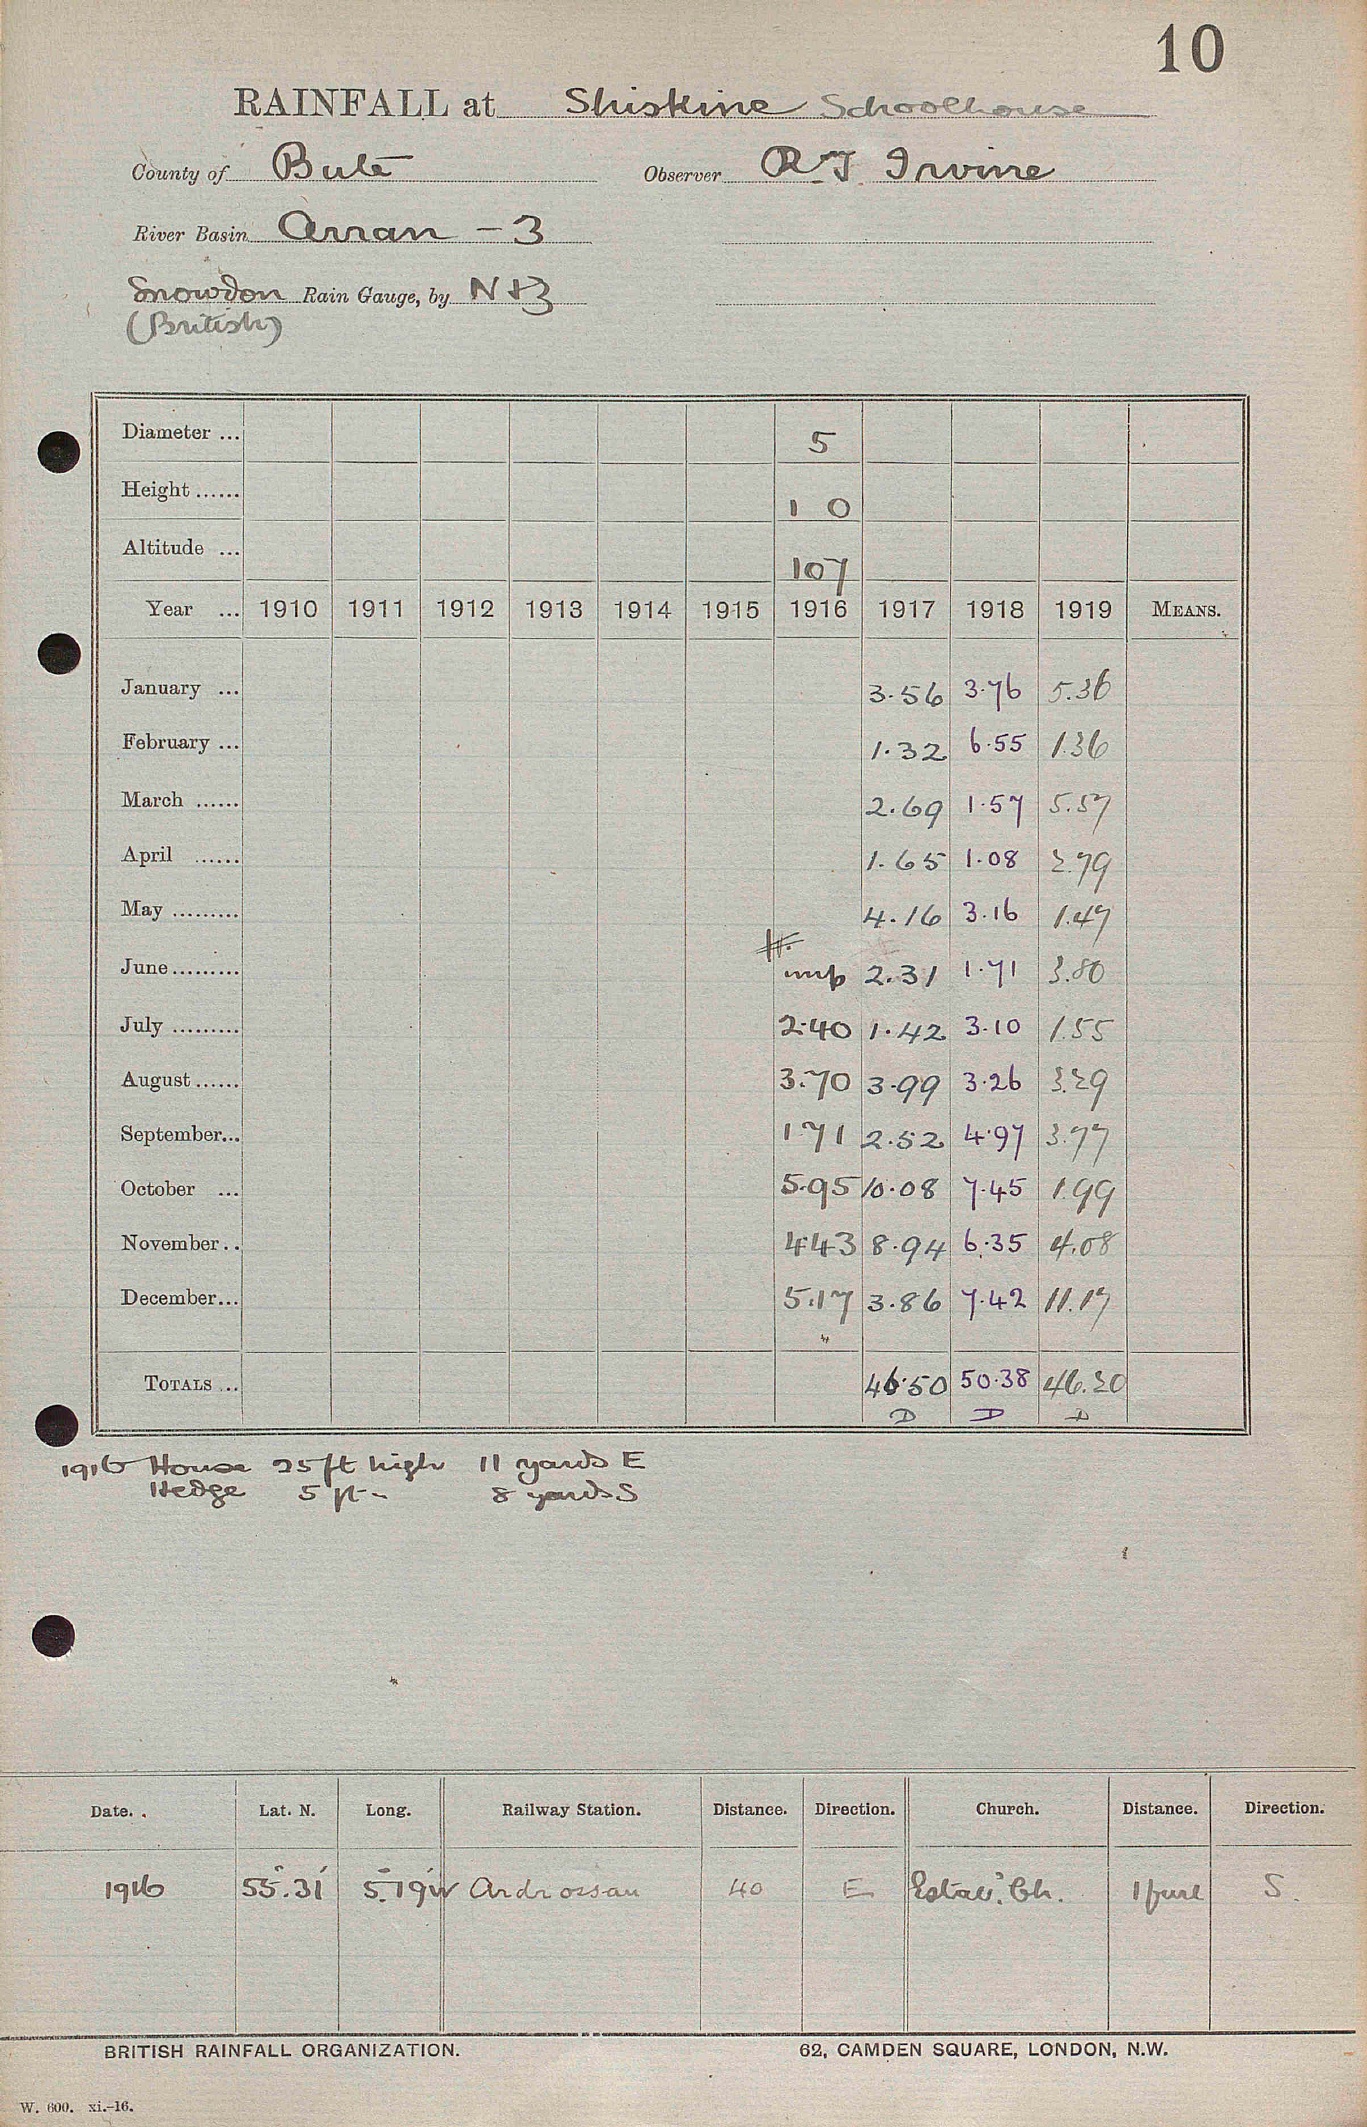 10
RAINFALL at Shiskine Schoolhouse
County of Bute Observer R.J. Irvine
River Basin Arran - 3
Snowdon Rain Gauge, by N+Z
(British)
Diameter ... 5
Height ...... 1 0
Altitude ... 107
Year ... 1910 1911 1912 1913 1914 1915 1916 1917 1918 1919 MEANS.
January ... 3.56 3.76 5.36
February ... 1.32 6.55 1.36
March ...... 2.69 1.57 5.57
April ...... 1.65 1.08 2.79
May ......... 4.16 3.16 1.47
June ......... imp 2.31 1.71 3.80
July ......... 2.40 1.42 3.10 1.55
August ...... 3.70 3.99 3.26 3.29
September... 1.71 2.52 4.97 3.77
October ... 5.95 10.08 7.45 1.99
November .. 4.43 8.94 6.35 4.08
December... 5.17 3.86 7.42 11.17
TOTALS ... 46.50 50.38 46.20
D D D
1916 House 25 ft high 11 yards E
Hedge 5 ft - 8 yards S
Date. . Lat. N. Long. Railway Station. Distance. Direction. Church. Distance. Direction.
1916 55°.31' 5°.19'W Ardrossan 40 E Estab. Ch. 1 furl S.
BRITISH RAINFALL ORGANIZATION. 62, CAMDEN SQUARE, LONDON, N.W.
W. 600. xi.-16.